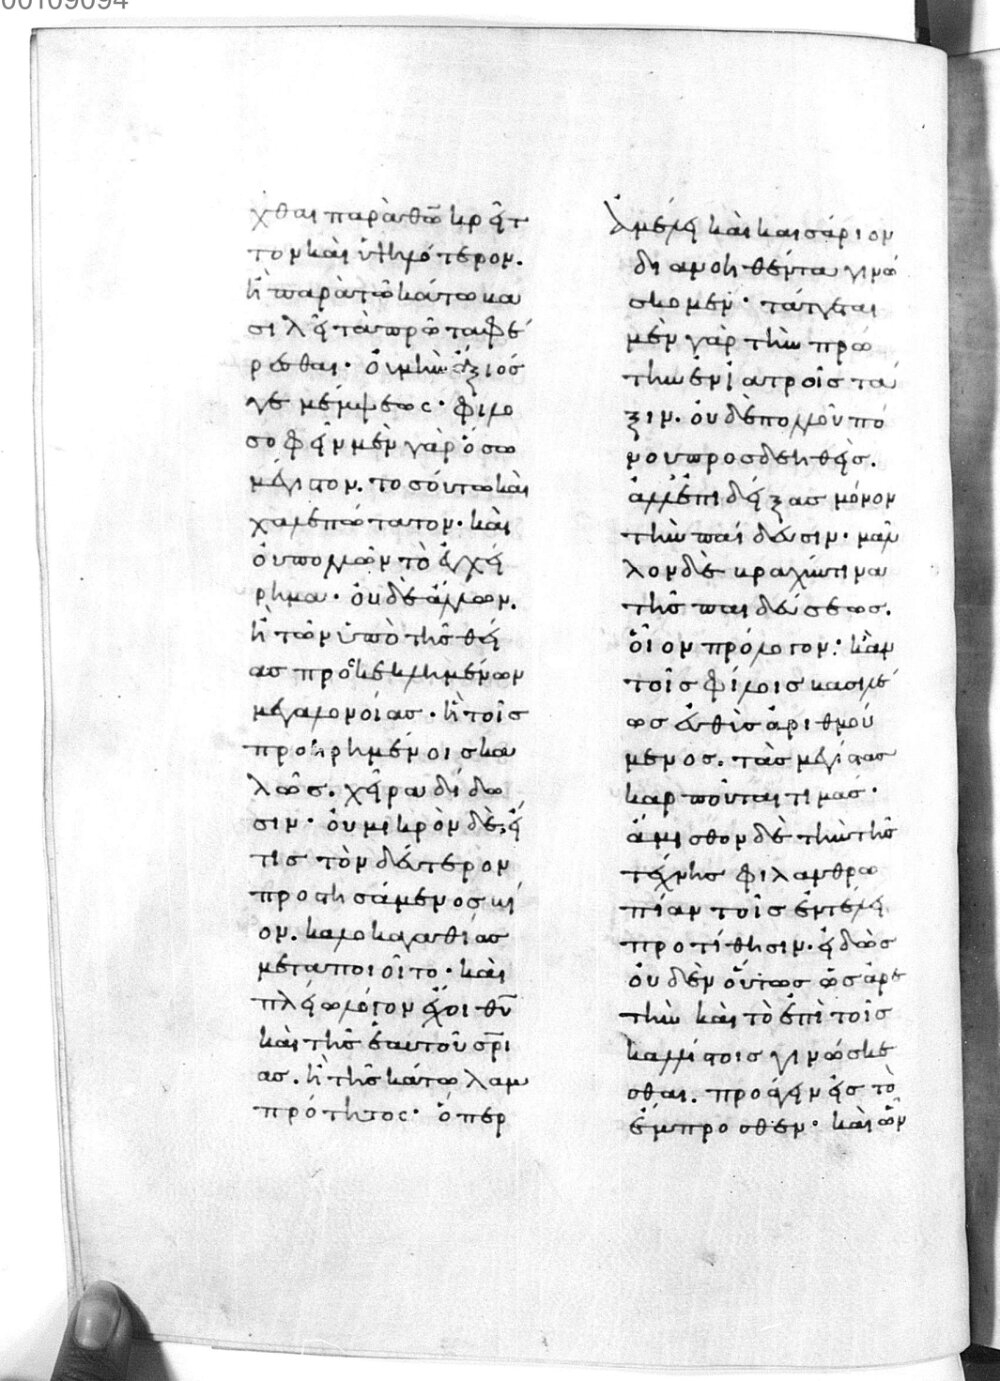 00109094
χθαι παρὰ θω̄ κρεῖτ
τον καὶ ὑψηλότερον.
ἢ παρὰ τῶ κάτω βα
σιλεῖ τὰ πρῶτα φέ
ρεσθαι· οὐ μὴν ἄξιός
γε μέμψεως· φιλο
σοφεῖν μὲν γὰρ ὅσω
μέγιστον. τοσούτω καὶ
χαλεπώτατον· καὶ
οὐ πολλῶν τὸ ἐγχεί
ρημα· οὐδὲ ἄλλων.
ἢ τῶν ὑπὸ τῆς θεί
ας προσκεκλημένων
μεγαλονοίας· ἢ τοῖς
προηρημένοις κα
λῶς. χεῖρα δίδω
σιν· οὐ μικρὸν δὲ, εἴ
τις τὸν δεύτερον
προστησάμενος βί
ον. καλοκαγαθίας
μεταποιοῖτο· καὶ
πλείω λόγον ἔχοι θῡ
καὶ τῆς ἑαυτοῦ σρ̄ι
ας. ἢ τῆς κάτω λαμ
πρότητος· ὅπερ
ἀμέλει καὶ καισάριον
διανοηθέντα γινώ
σκομεν· τάττεται
μὲν γὰρ τὴν πρώ
την ἐν ἰατροῖς τά
ξιν. οὐδὲ πολλοῦ πό
νου προσδεηθεὶς.
ἀλλ' ἐπιδείξας μόνον
τὴν παίδευσιν· μᾶλ
λον δὲ βραχύν τινα
τῆς παιδεύσεως.
οἷον πρόλογον· κἀν
τοῖς φίλοις βασιλέ
ως εὐθὺς ἀριθμού
μενος. τὰς μεγίστας
καρποῦται τιμάς·
ἄμισθον δὲ τὴν τῆς
τέχνης φιλανθρω
πίαν τοῖς ἐν τέλει
προτίθησιν. εἰδὼς
οὐδὲν οὕτως ὡς ἀρε
τὴν καὶ τὸ ἐπὶ τοῖς
καλλίστοις γινώσκε
σθαι. προάγειν εἰς τὸ
ἔμπροσθεν· καὶ ὧν